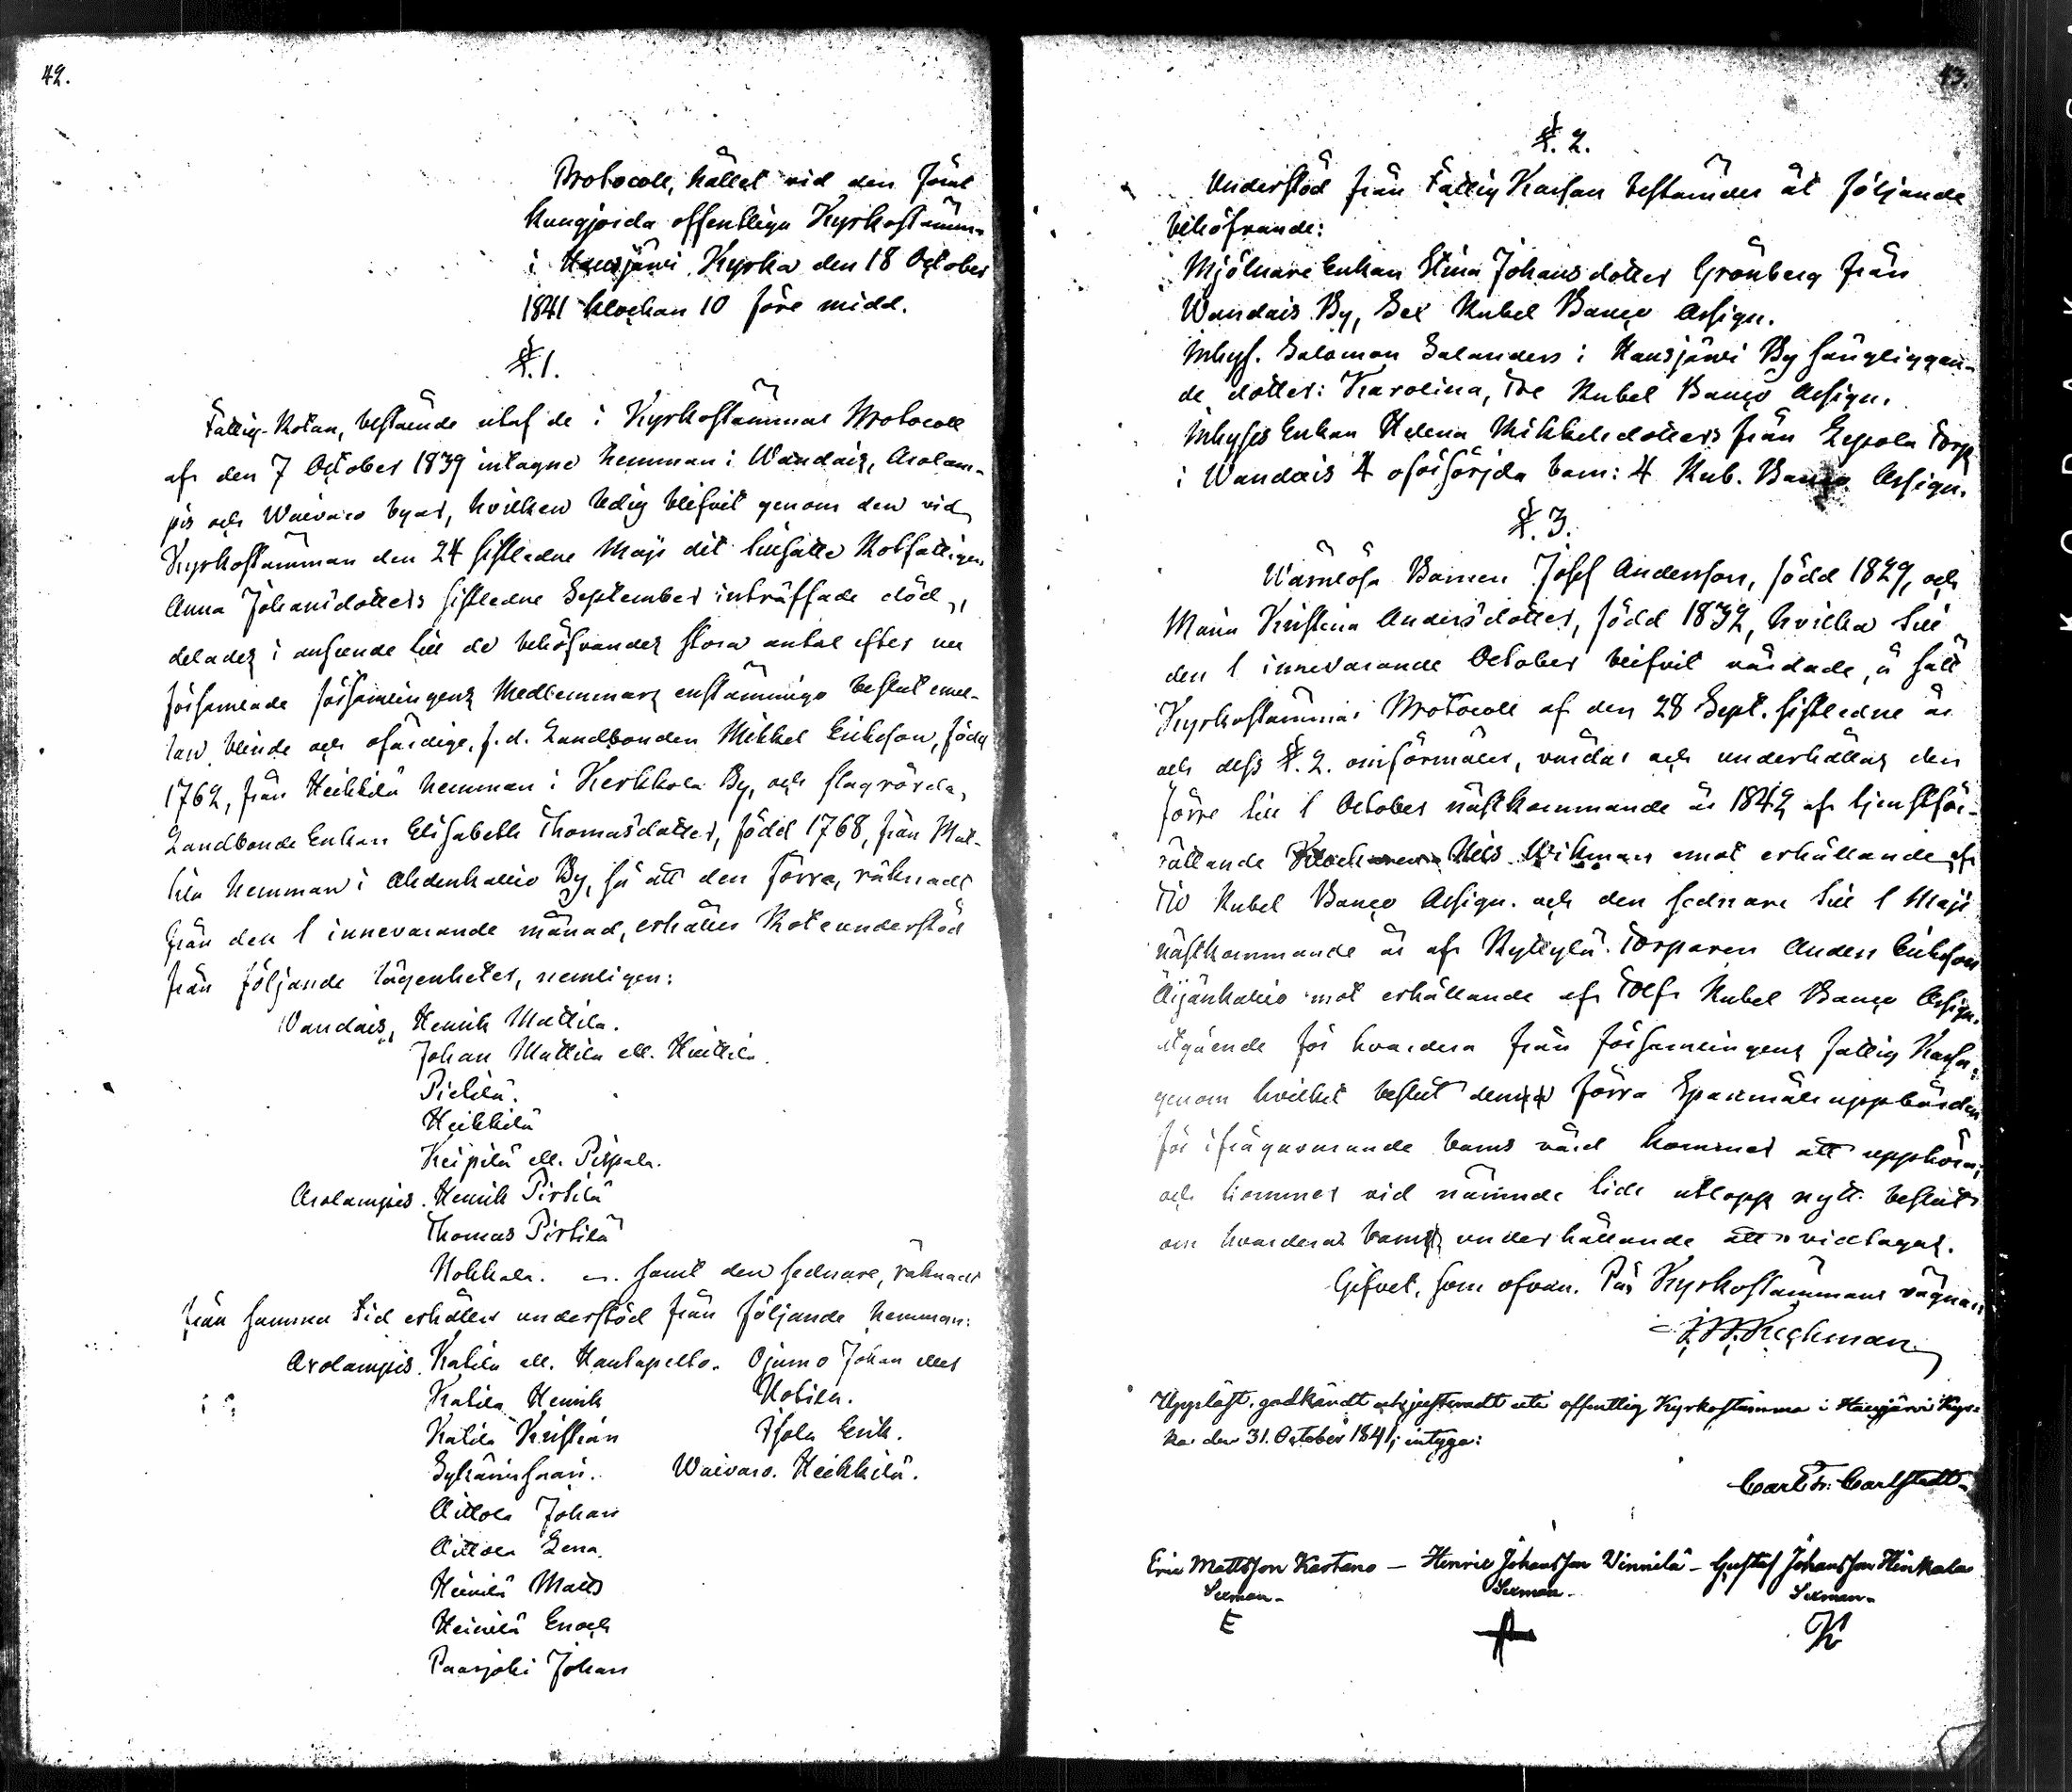 42.
Protocoll, hållet vid den förut
kungjorda offentliga Kyrkostämma
i Hausjärwi Kyrka den 18 October
1841 klockan 10 före midd.
§. 1.
Fattig-Rotan, bestående utaf de i Kyrkostämmas Protocoll
af den 7 October 1839 intagne hemman i Wandais, Arolam-
pis och Waivaro byar, hvilken ledig blifvit genom den vid
Kyrkostämman den 24 sistledne Maji dit hänsatte Rotfattigen
Anna Johansdotters sistledne September inträffade död,
delades i anseende till de behöfvandes stora antal efter nu
församlade församlingens medlemmars enstämmiga beslut emel-
lan blinde och ofärdige, f.d. Landbonden Mikkel Erikson, född
1762, från Heikkilä hemman i Kerkkola By, och slagrörda
Landbonde Enkan Elisabeth Thomasdotter, född 1768, från Mat-
tila hemman i Ahdenkallio By, så att den förra, räknadt
från den 1 innevarande månad, erhåller Roteunderstöd
från följande lägenheter, nemligen:
Wandais, Henrik Mattila.
Johan Mattila ell. Knittilä.
Pietilä.
Heikkilä
Keipilä ell. Pispala.
Arolampis. Henrik Pirtilä
Thomas Pirtilä
Nokkala. samt den sednare, räknadt
från samma tid erhåller understöd från följande hemman:
Arolampis. Katila ell. Hautapelto. Ojumo Johan eller
Katila Henrik Notila.
Katila Kristian Isola Erik.
Sykäinsaari. Waivaro. Heikkilä.
Aittola Johan
Aittola Lena.
Heinilä Matts
Heinilä Enoch
Paarjoki Johan
43.
§. 2.
Understöd från Fattig Kassan bestämdes åt följande
behöfvande:
Mjölnare Enkan Stina Johansdotter Grönberg från
Wandais By, Sex Rubel Banco Assign.
Inhys. Salomon Salanders i Hausjärwi By sängliggan-
de dotter: Karolina, Tre Rubel Banco Assign.
Inhyses Enkan Helena Mikkelsdotters från Lepola Torp
i Wandais 4 oförsörjda barn: 4 Rub. Banco Assign.
§. 3.
Wärnlösa Barnen Josef Andersson, född 1829, och
Maria Kristina Andersdotter, född 1832, hvilka till
den 1 innevarande October blifvit vårdade, å sätt
Kyrkostämmas Protocoll af den 28 Sept. sistledne år
och dess §. 2. omförmäler, vårdas och underhållas den
förre till 1 October nästkommande år 1842 af tjenstför-
rättande Klockaren Nils Wikman emot erhållande af
Tio Rubel Banco Assign. och den sednare till 1 Maji
nästkommande år af Ryttylä Torparen Anders Erikson
Äijänkallio mot erhållande af Tolf Rubel Banco Assign.
utgående för hvardera från församlingens fattig Kassa,
genom hvilket beslut den förra Spanmåls uppbörden
för ifrågavarande barns vård kommer att upphöra,
och kommer vid nämnde tids utlopp nytt beslut
om hvarderas barns underhållande att vidtagas.
Gifvet, som ofvan. På Kyrkostämmans vägnar
Uppläst, godkändt och justeradt uti offentlig Kyrkostämma i Hausjärvi Kyr-
ka den 31. October 1841; intyga:
Carl Fr: Carlstedt.
Eric Mattsson Kartano — Henric Johansson Winnilä — Gustaf Johansson Hinkala
Sexman. Sexman. Sexman.
E K